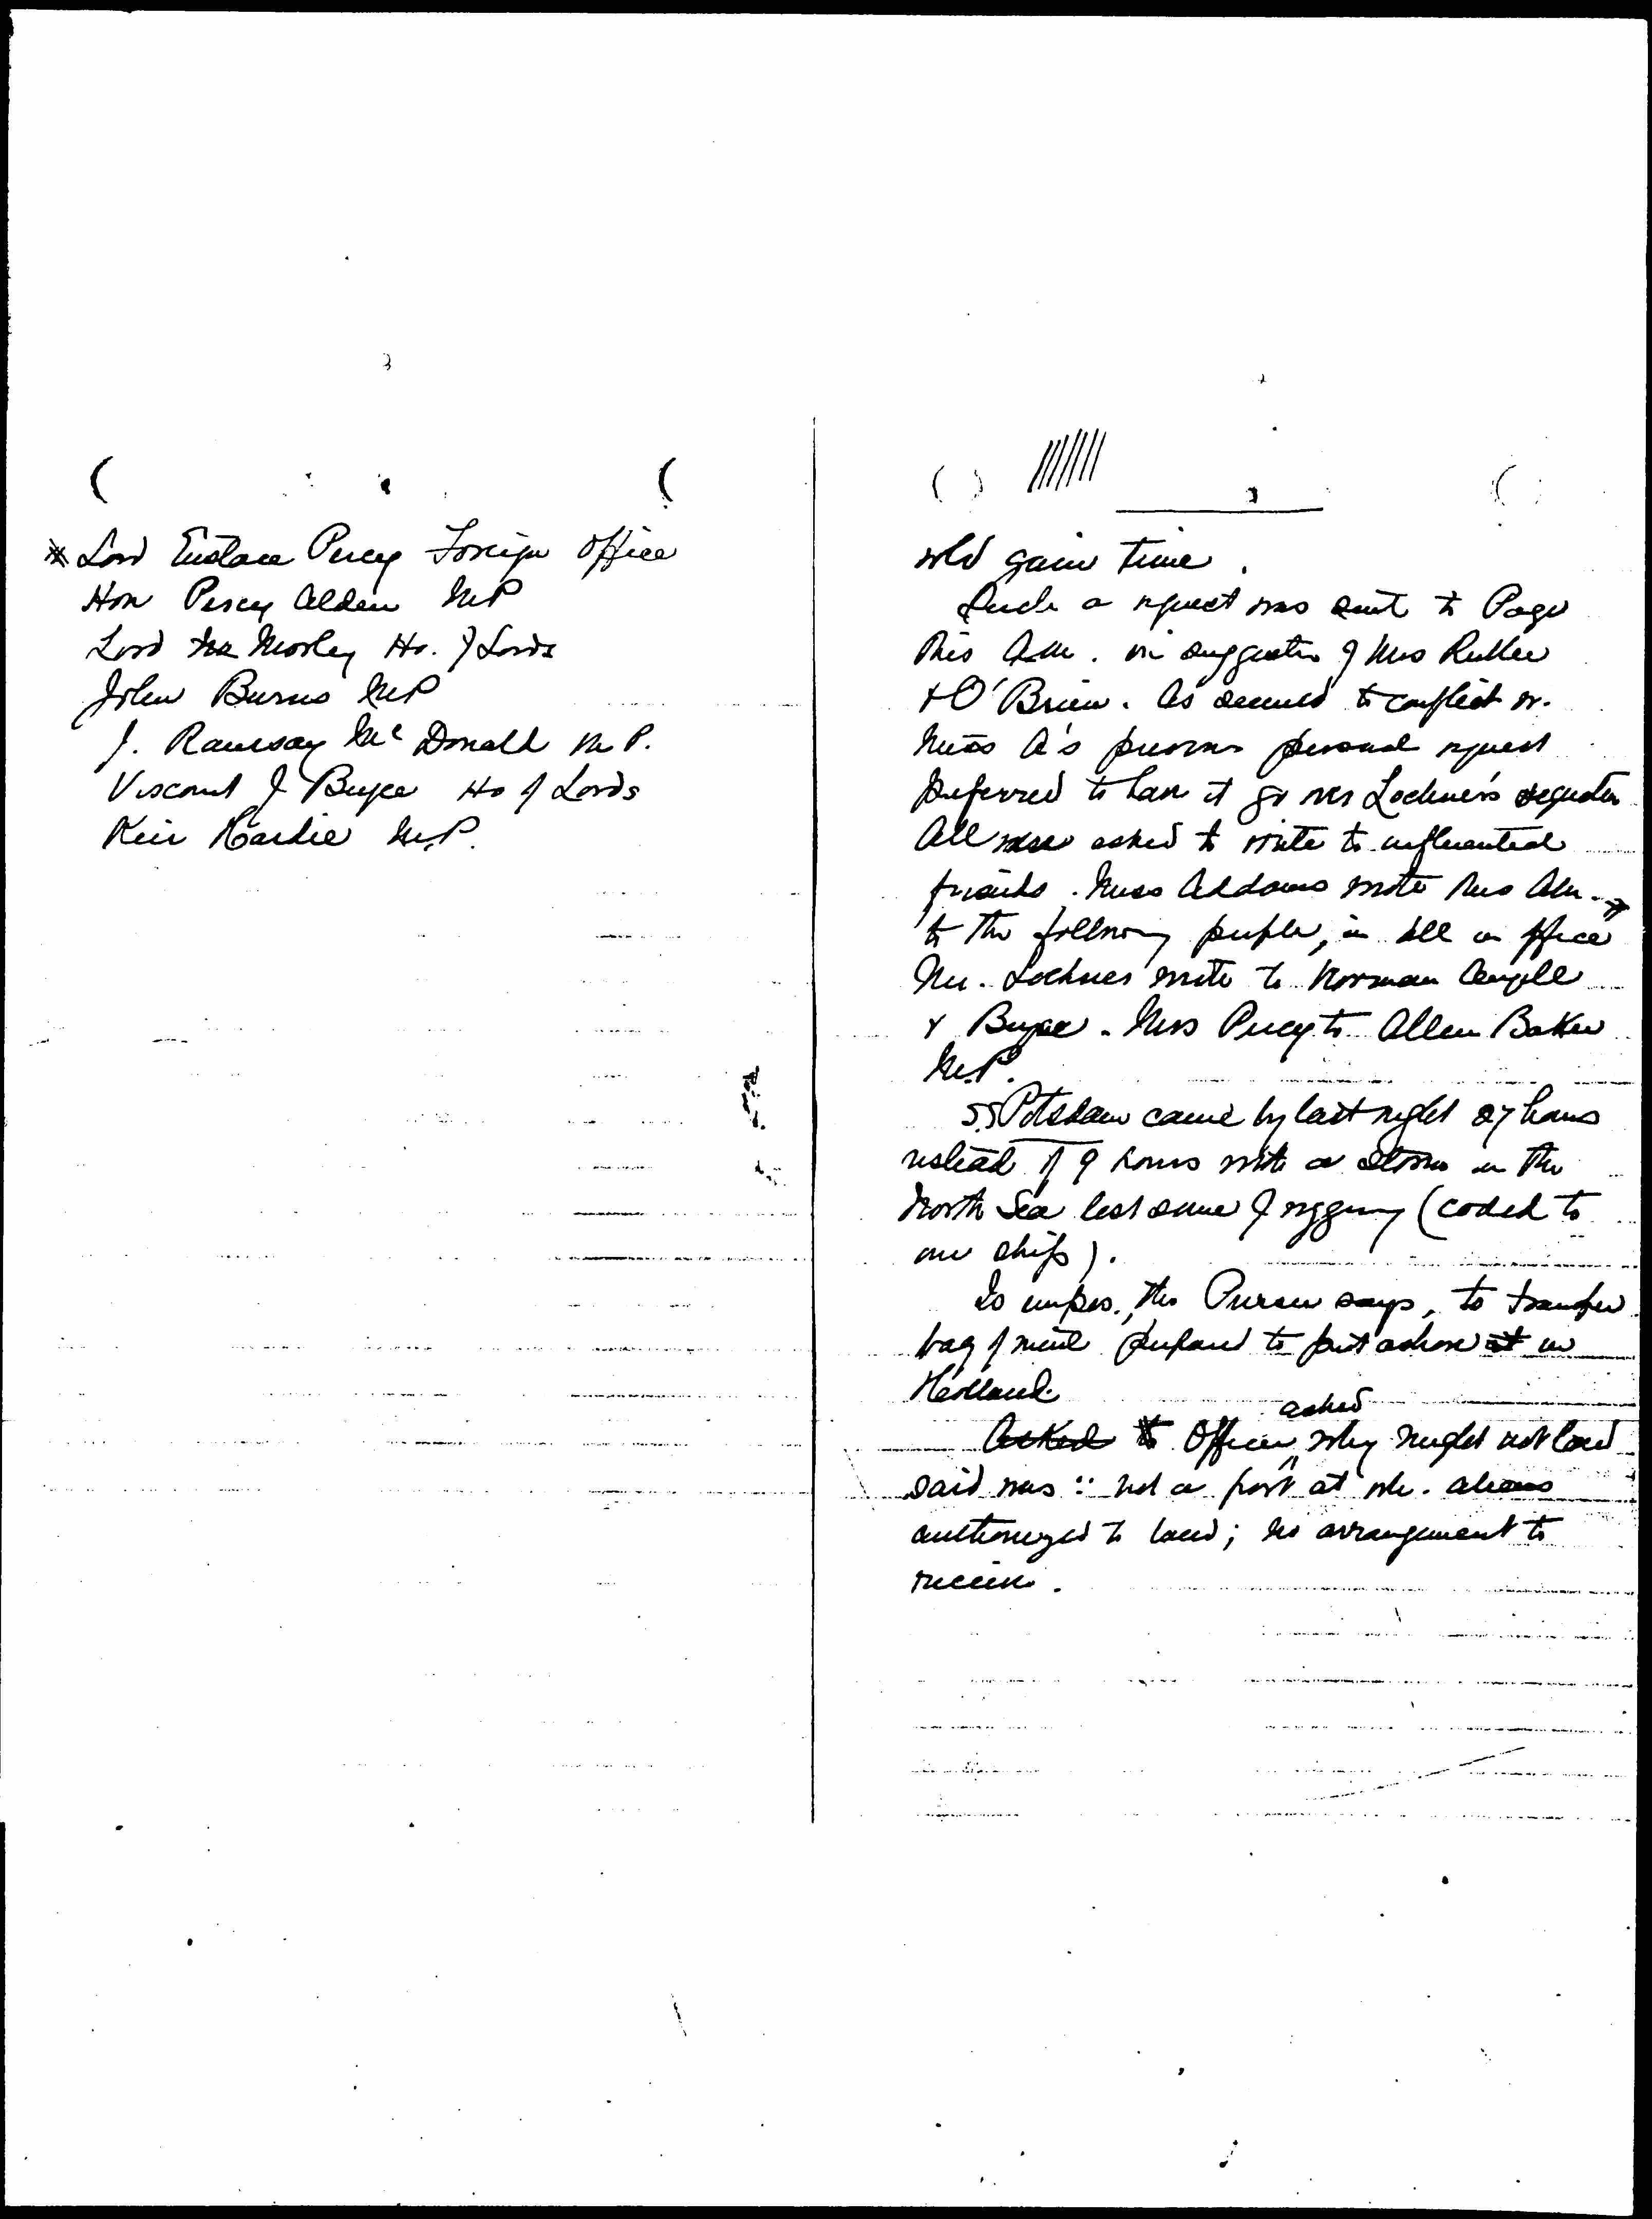 * Lord Eustace Percy Foreign Office
Hon Percy Alden M P
Lord Morley Ho. of Lords
John Burns M P
J. Ramsay Mc Donald M. P.
Viscount J Bryce Ho of Lords
Keir Hardie M.P.
wld gain time.
Such a request was sent to Page
this A.M. on suggestn of Mrs Rublee
& O'Brien. As seemed to conflict w.
Miss A's previous personal request
preferred to have it go over Lochner's
All were asked to write to influential
friends. Miss Addams wrote this AM.
to the following people, in all in office
Mr. Lochner wrote to Norman Angell
& Bryce. Mrs Percy to Allen Baker
M.P.
S.S Potsdam came by last night 27 hours
instead of 9 hours with a storm in the
North Sea lost some of rigging (coded to
our ship).
Is impos., the Purser says, to transfer
bag of mail prepared to put ashore at in
Holland.
Asked to Officer asked why might not land
said was : not a port at wh. aliens
authorized to land; no arrangement to
receive.